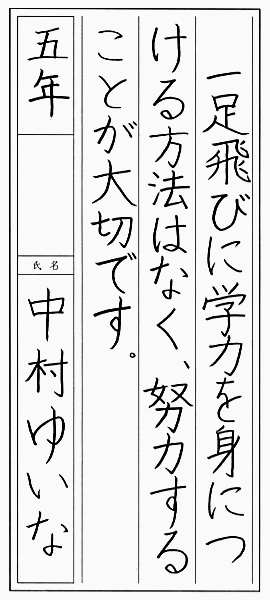 一足飛びに学力を身につ
ける方法はなく、努力する
ことが大切です。
五年
氏名
中村ゆいな